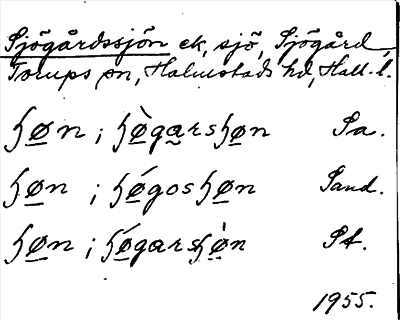 Sjögårdssjön ek, sjö, Sjögård,
Torups sn, Halmstads hd, Hall. l.
ɧø̲n ; ɧø̲̀ga̲rsɧø̲n Sa.
ɧø̲n ; ɧǿ̲gosɧø̲n Sand.
ɧø̲n ; ɧǿ̲garsɧø̲̀n St.
1955.